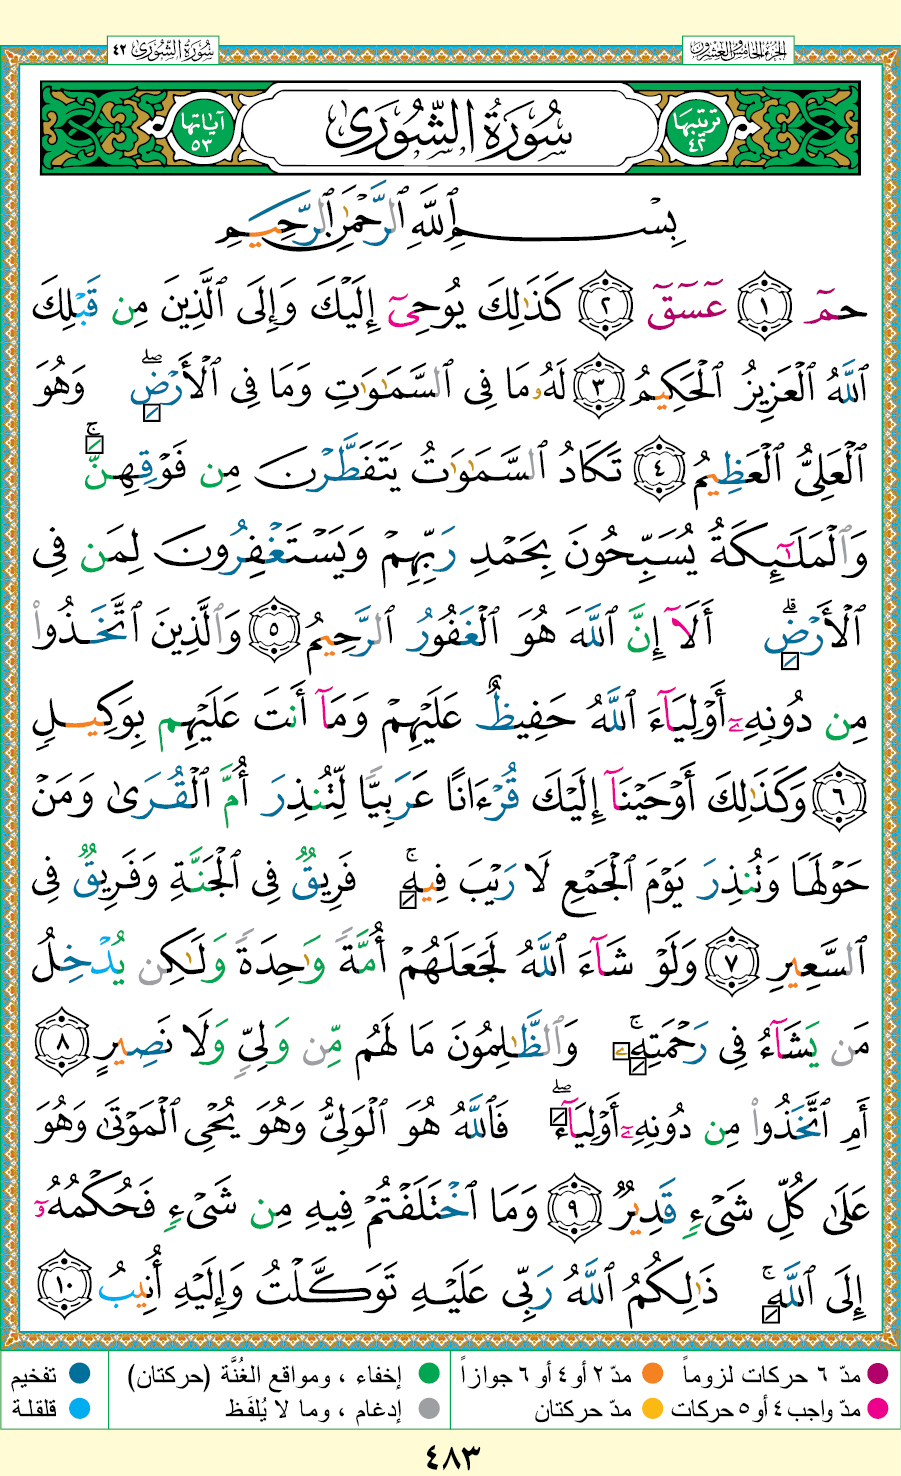 الجزء الخامس والعشرون
سُورَةُ الشُّورَىٰ ٤٢
ترتيبها ٤٢
سُورَةُ الشُّورَىٰ
آياتها ٥٣
بِسْمِ ٱللَّهِ ٱلرَّحْمَٰنِ ٱلرَّحِيمِ
حمٓ ١ عٓسٓقٓ ٢ كَذَٰلِكَ يُوحِىٓ إِلَيْكَ وَإِلَى ٱلَّذِينَ مِن قَبْلِكَ
ٱللَّهُ ٱلْعَزِيزُ ٱلْحَكِيمُ ٣ لَهُۥ مَا فِى ٱلسَّمَٰوَٰتِ وَمَا فِى ٱلْأَرْضِ ۖ وَهُوَ
ٱلْعَلِىُّ ٱلْعَظِيمُ ٤ تَكَادُ ٱلسَّمَٰوَٰتُ يَتَفَطَّرْنَ مِن فَوْقِهِنَّ ۚ
وَٱلْمَلَٰٓئِكَةُ يُسَبِّحُونَ بِحَمْدِ رَبِّهِمْ وَيَسْتَغْفِرُونَ لِمَن فِى
ٱلْأَرْضِ ۗ أَلَآ إِنَّ ٱللَّهَ هُوَ ٱلْغَفُورُ ٱلرَّحِيمُ ٥ وَٱلَّذِينَ ٱتَّخَذُوا۟
مِن دُونِهِۦٓ أَوْلِيَآءَ ٱللَّهُ حَفِيظٌ عَلَيْهِمْ وَمَآ أَنتَ عَلَيْهِم بِوَكِيلٍ
٦ وَكَذَٰلِكَ أَوْحَيْنَآ إِلَيْكَ قُرْءَانًا عَرَبِيًّا لِّتُنذِرَ أُمَّ ٱلْقُرَىٰ وَمَنْ
حَوْلَهَا وَتُنذِرَ يَوْمَ ٱلْجَمْعِ لَا رَيْبَ فِيهِ ۚ فَرِيقٌ فِى ٱلْجَنَّةِ وَفَرِيقٌ فِى
ٱلسَّعِيرِ ٧ وَلَوْ شَآءَ ٱللَّهُ لَجَعَلَهُمْ أُمَّةً وَٰحِدَةً وَلَٰكِن يُدْخِلُ
مَن يَشَآءُ فِى رَحْمَتِهِۦ ۚ وَٱلظَّٰلِمُونَ مَا لَهُم مِّن وَلِىٍّ وَلَا نَصِيرٍ ٨
أَمِ ٱتَّخَذُوا۟ مِن دُونِهِۦٓ أَوْلِيَآءَ ۖ فَٱللَّهُ هُوَ ٱلْوَلِىُّ وَهُوَ يُحْىِ ٱلْمَوْتَىٰ وَهُوَ
عَلَىٰ كُلِّ شَىْءٍ قَدِيرٌ ٩ وَمَا ٱخْتَلَفْتُمْ فِيهِ مِن شَىْءٍ فَحُكْمُهُۥٓ
إِلَى ٱللَّهِ ۚ ذَٰلِكُمُ ٱللَّهُ رَبِّى عَلَيْهِ تَوَكَّلْتُ وَإِلَيْهِ أُنِيبُ ١٠
مدّ ٦ حركات لزوماً
مدّ ٢ أو ٤ أو ٦ جوازاً
إخفاء ، ومواقع الغُنَّة (حركتان)
تفخيم
مدّ واجب ٤ أو ٥ حركات
مدّ حركتان
إدغام ، وما لا يُلفَظ
قلقلة
٤٨٣